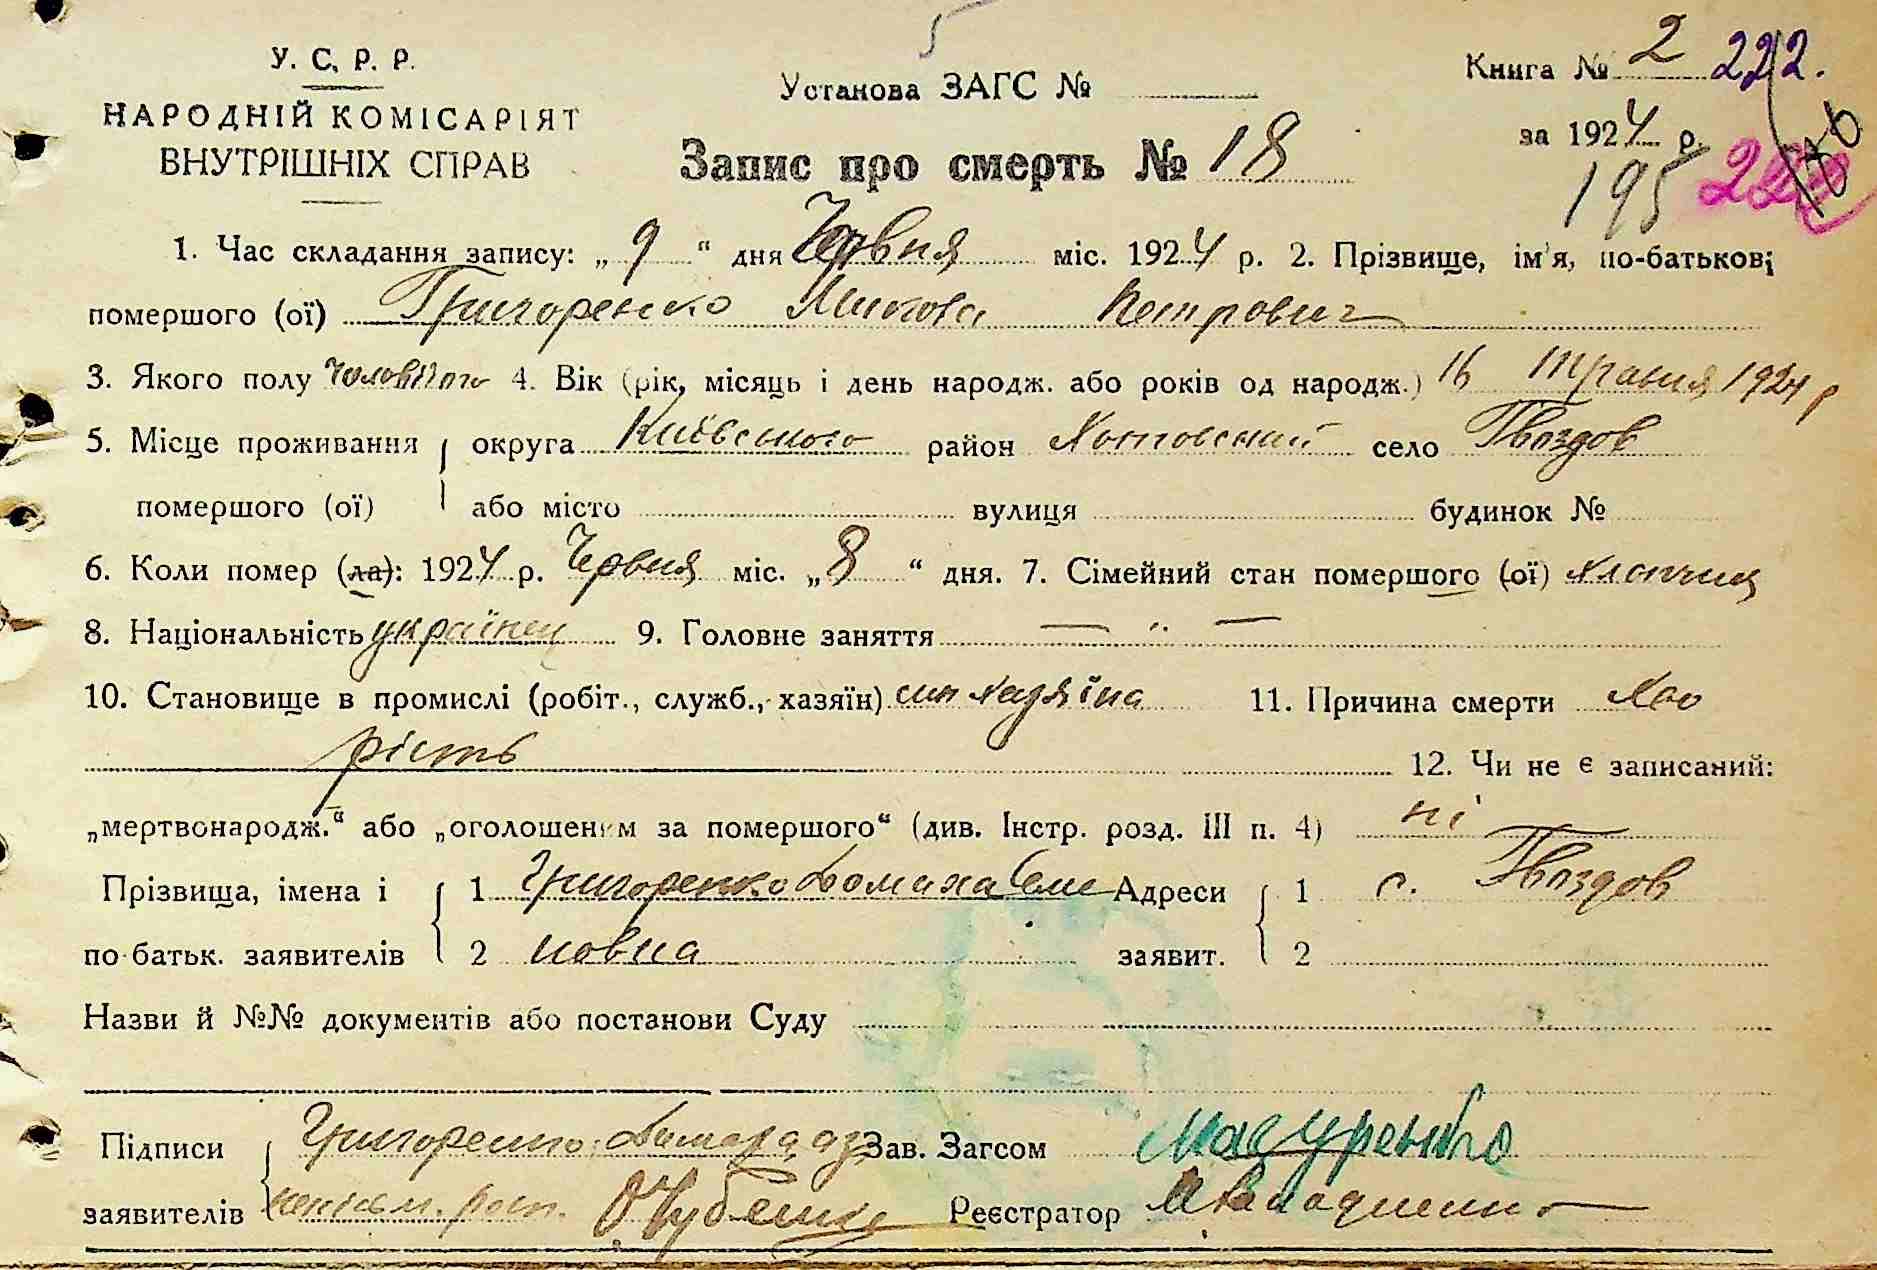 5
У. С. Р. Р.
НАРОДНІЙ КОМІСАРІЯТ
ВНУТРІШНІХ СПРАВ
Установа ЗАГС №
Книга № 2 222.
за 1924 р.
195
Запис про смерть № 18
1. Час складання запису: „ 9 “ дня Червня міс. 1924 р. 2. Прізвище, ім'я, по-батькові
помершого (ої) Григоренко Микола Петрович
3. Якого полу чоловічого 4. Вік (рік, місяць і день народж. або років од народж.) 16 Травня 1924 р
5. Місце проживання округа Київського район Хотовский село Гвоздов
помершого (ої) або місто вулиця будинок №
6. Коли помер (ла): 1924 р. Червня міс. „ 8 “ дня. 7. Сімейний стан помершого (ої) хлопчик
8. Національність українец 9. Головне заняття — „ —
10. Становище в промислі (робіт., служб., хазяїн) син хазяїна 11. Причина смерти Хво
рість 12. Чи не є записаний:
„мертвонародж.“ або „оголошеним за помершого“ (див. Інстр. розд. III п. 4) ні
Прізвища, імена і 1 Григоренко Домаха Семе Адреси 1 с. Гвоздов
по-батьк. заявителів 2 новна заявит. 2
Назви й №№ документів або постанови Суду
Підписи Григоренко Домаха Зав. Загсом Мазуренко
заявителів Реєстратор